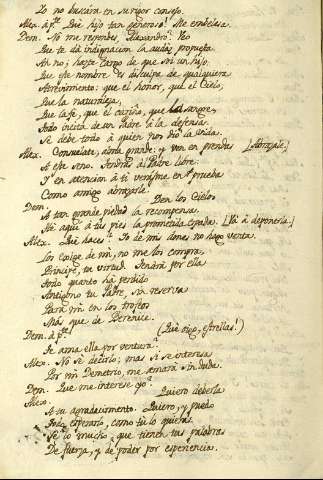 Lo no buscára en su rigor consejo.
Alex. á pte. Que hijo tan generoso! Me embelesa.
Dem. No me respondes, Alexandro? Veo
Que te dá indignacion la audáz propuesta.
Ah no; hazte cargo de que soi un hijo.
Que este nombre es disculpa de qualquiera
Atrevimiento: que el honor, que el Cielo,
Que la naturaleza,
Que la fe, que el cariño, que la sangre,
Todo incita de un Padre á la defensa.
Se debe todo á quien nos dió la vida.
Alex. Consuelate, alma grande: y ven en prendas [Abrazale.]
A este seno. Tendrás al Padre libre:
Y en atencion á ti verásme en prueba
Como amigo abrazarle.
Dem. Den los Cielos
A tan grande piedad la recompensa.
He aqui á tus pies la prometida espada. [Vá á deponerla.]
Alex. Que haces? Yo de mis dones no hago venta.
Los exige de mi, no me los compra,
Principe, tu virtud. Tendrá por ella
Todo quanto há perdido
Antigono tu Padre, sin reserva
Para mi en los troféos
Más que de Berenice.
Dem. á pte. (Qué oigo, estrellas!)
Te ama ella por ventura?
Alex. No Se decirlo; mas si se interesa
Por mi Demetrio, me amará sin duda.
Dem. Que me interese yo?
Alex. Quiero deberla
A tu agradecimiento. Quiero, y puedo
Todo esperarlo, como tú lo quieras.
Se lo mucho, que tienen tus palabras
De fuerza, y de poder por esperiencia.